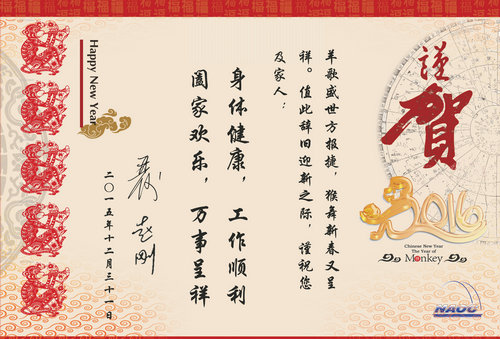 謹賀
2016
Chinese New Year
The Year of
Monkey
NAOC
羊歌盛世方报捷，猴舞新春又呈
祥。值此辞旧迎新之际，谨祝您
及家人：
身体健康，工作顺利
阖家欢乐，万事呈祥
赵刚
二〇一五年十二月三十一日
Happy New Year